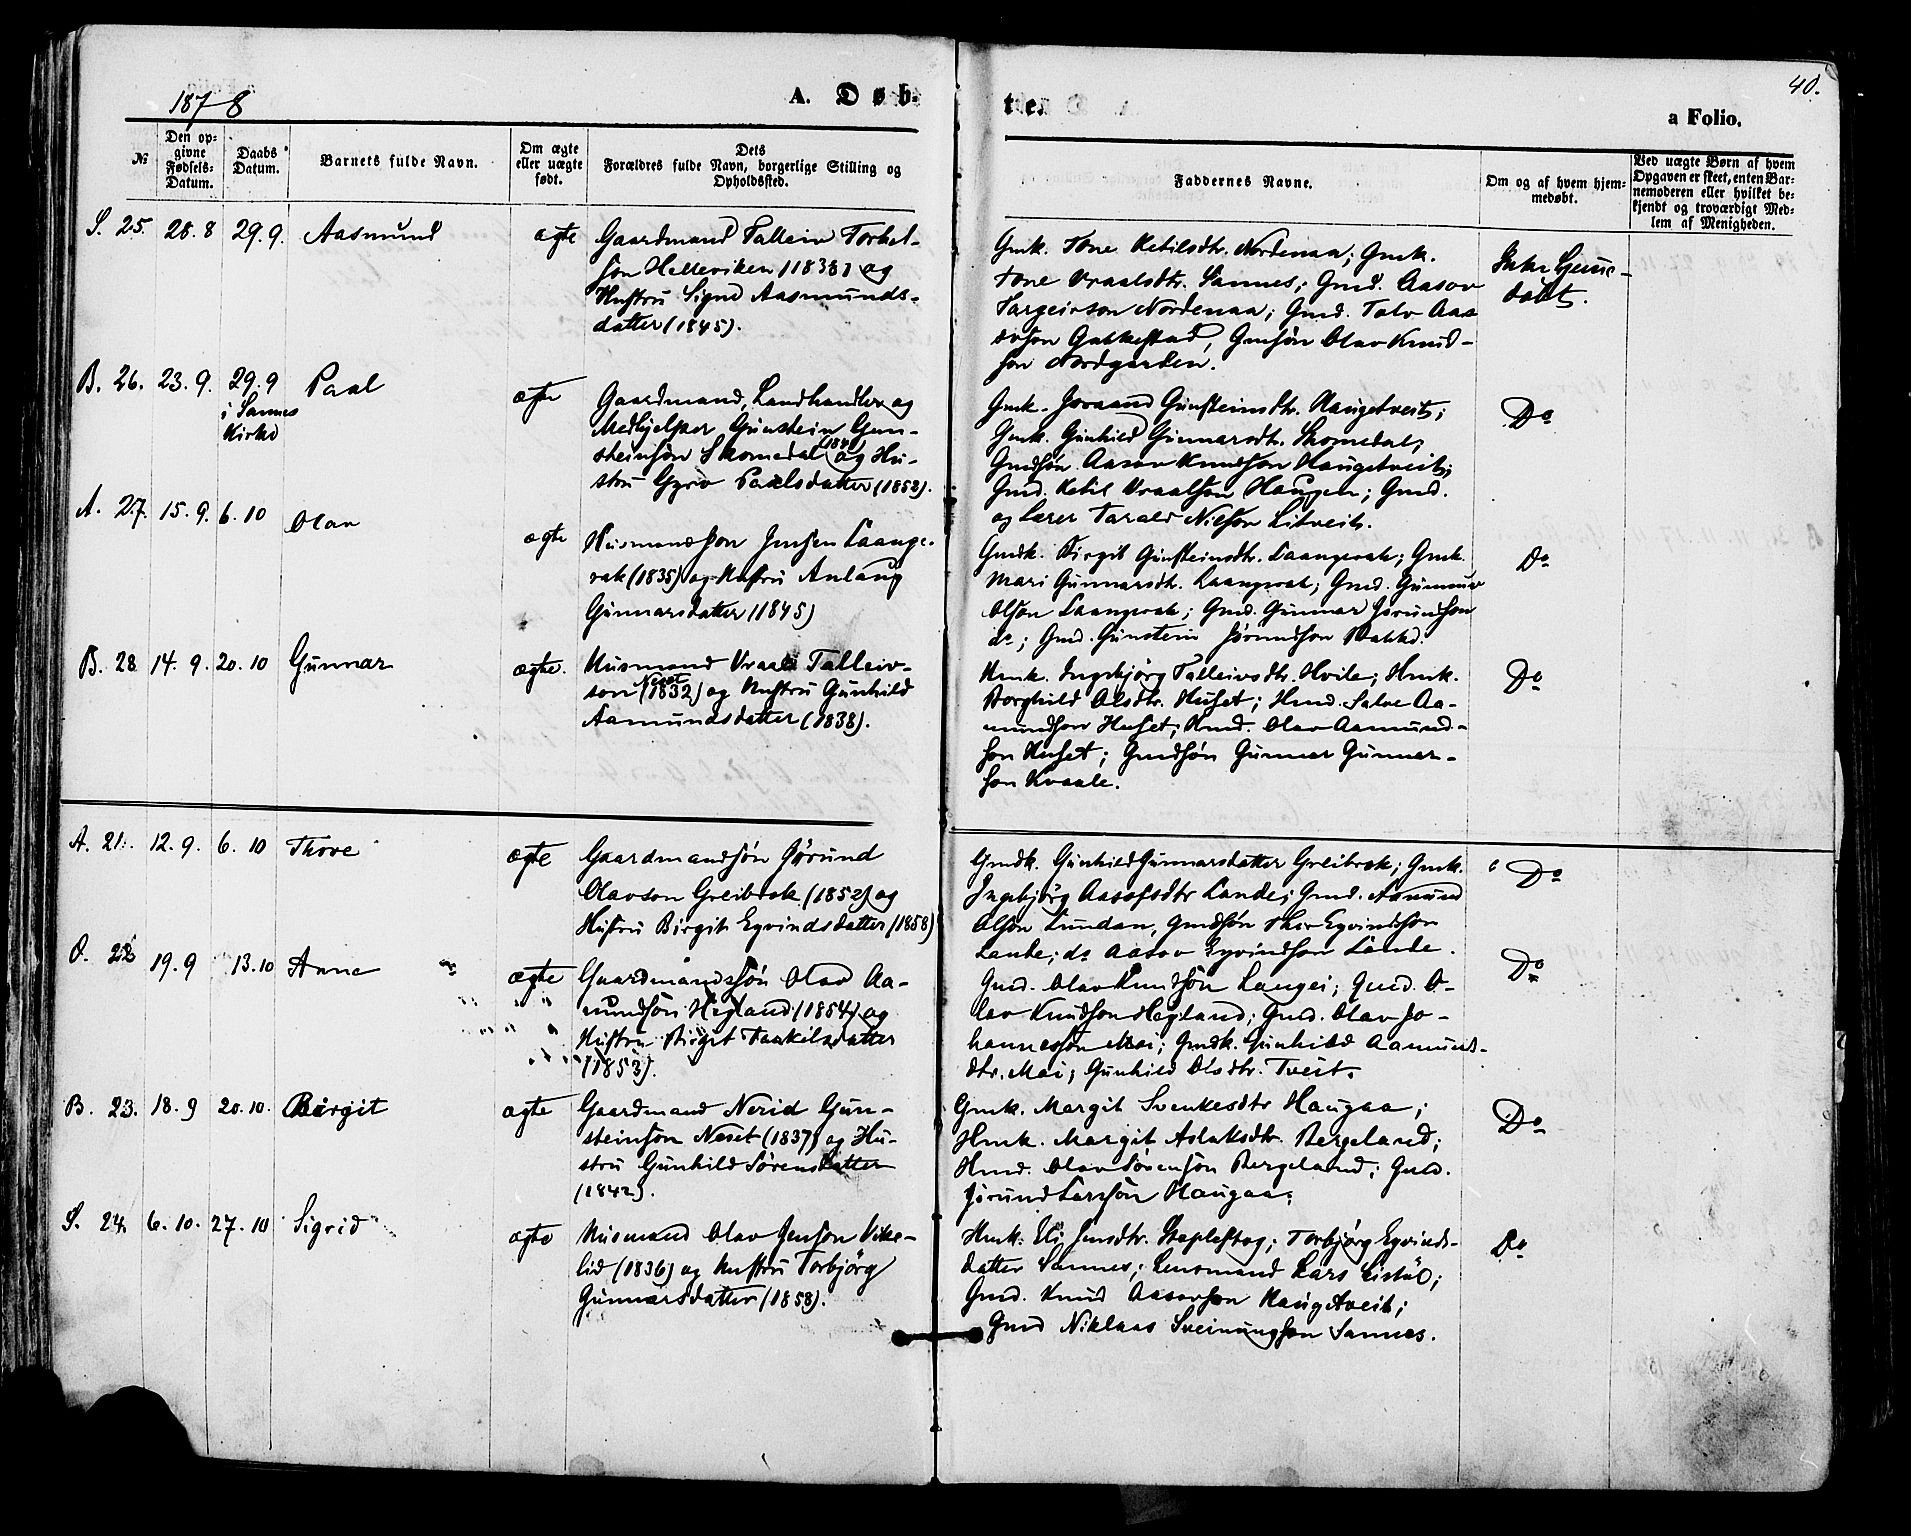 1878
A. Døb-
te.
a Folio.
40.
№
Den op-
givne
Fødsels-
Datum.
Daabs
Datum.
Barnets fulde Navn.
Om ægte
eller uægte
født.
Dets
Forældres fulde Navn, borgerlige Stilling og
Opholdssted.
Faddernes Navne.
Om og af hvem hjem-
medøbt.
Ved uægte Børn af hvem
Opgaven er skeet, enten Bar-
nemoderen eller hvilket be-
kjendt og troværdigt Med-
lem af Menigheden.
S. 25. 28.8 29.9. Aasmund ægte
Gaardmand Talleiv Torkel-
son Helleviken og
Hustru Signe Aasmunds-
datter (1845).
Gmk. Tone Ketilsdtr. Nordenaa; Gmk.
Tone Vraalsdtr. Sannes; Gmd. Aasov
Targeirson Nordenaa; Gmd. Talv Aas
ovson Gakkestad, Gmsøn Olav Knud-
son Nordgarden.
Ikke hjemme-
døbt.
B. 26. 23.9. 29.9 Paal ægte
i Sannes
Kirke
Gaardmand, Landhandler og
Medhjelper Gunstein Gun-
steinsøn Skomedal og Hu-
stru Gyro Paalsdatter (1852).
Gmk. Joraand Gunsteinsdtr. Haugetveit;
Gmk. Gunhild Gunnarsdt. Skomedal;
Gmdsøn Aasov Knudson Haugetveit;
Gmd. Ketil Vraalson Haugen; Gmd.
og Lærer Tarald Nielson Litveit.
Do
A. 27. 15.9. 6.10 Olav ægte
Husmandsøn Jens Laange-
rak (1835) og Hustru Anlaug
Gunnarsdatter (1845)
Gmdk. Birgit Gunsteinsdtr. Laangerak; Gmk.
Mari Gunnarsdt. Laangerak; Gmd. Gunnar
Olson Laangerak; Gmd. Gunnar Jorundson
do; Gmd. Gunstein Jorundson
Do
B. 28 14.9. 20.10 Gunnar ægte.
Husmand Vraal Talleiv-
son Neset (1832) og Hustru Gunhild
Aamundsdatter (1838).
Hmk. Ingebjörg Talleivsdtr. Hvile; Hmk.
Borghild Olsdtr. Huset; Hmd. Salve Aa-
mundson Huset; Hmd. Olav Aamund-
son Huset; Gmdsön Gunnar Gunnar-
son Kvaale.
Do
A. 21. 12.9. 6.10 Thove ægte
Gaardmandsön Jørund
Olavson Greibrok (1852) og
Hustru Birgit Eyvindsdatter (1858)
Gmdk. Gunhild Gunnarsdatter Greibrok; Gmk.
Ingebjörg Aasofsdtr Lande; Gmd. Aamund
Olsøn Lundan, Gmdsøn Thor Eyvindson
Lande; do Aasov Eyvindson Lande.
Do
O. 22 19.9 13.10 Anne ægte
Gaardmandssön Olav Aa-
mundsön Hegland (1854) og
Hustru Birgit Taakilsdatter
(1853).
Gmd. Olav Knudsøn Langei; Gmd. O-
lav Knudson Hegland; Gmd. Olav Jo-
hannesson Moi; Gmdk. Gunhild Aamunds-
dtr. Moi; Gunhild Olsdtr. Tveit.
Do
B. 23. 18.9 20.10. Birgit ægte
Gaardmand Nerid Gun-
steinson Neset (1837) og Hu-
stru Gunhild Sørensdatter
(1842).
Gmk. Margit Svenkesdtr Haugaa;
Hmk. Margit Aslaksdtr. Bergeland;
Hmd. Olav Sörensön Bergeland; Gmd.
Jörund Larssön Haugaa.
Do
S. 24. 6.10. 27.10 Sigrid ægte
Husmand Olav Jenson Vike-
lid (1836) og Hustru Torbjörg
Gunnarsdatter (1858).
Hmk. Eli Jensdtr. Stoplestog; Torbjörg Eyvinds-
datter Sannes; Lensmand Lars Listöl;
Gmd. Knud Aasovson Haugetveit;
Gmd Niklaas Sveinungson Sannes.
Do